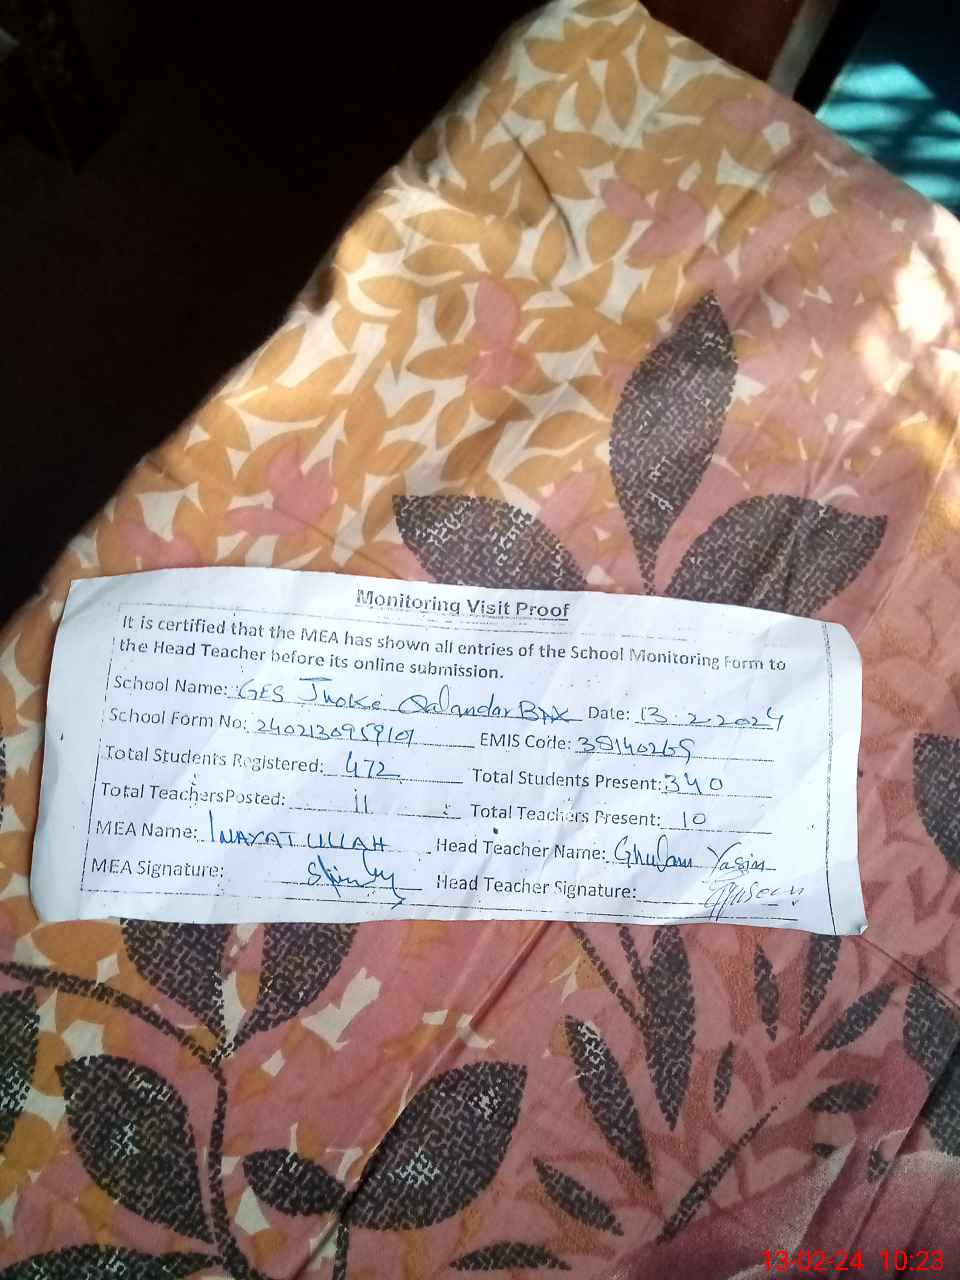 Monitoring Visit Proof
It is certified that the MEA has shown all entries of the School Monitoring Form to
the Head Teacher before its online submission.
School Name: GES Jhoke Qalandar Bux Date: 13.2.2024
School Form No: 2402130959101 EMIS Code: 38140269
Total Students Registered: 472 Total Students Present: 340
Total TeachersPosted: 11 Total Teachers Present: 10
MEA Name: INAYAT ULLAH Head Teacher Name: Ghulam Yasin
MEA Signature: Head Teacher Signature:
13-02-24 10:23